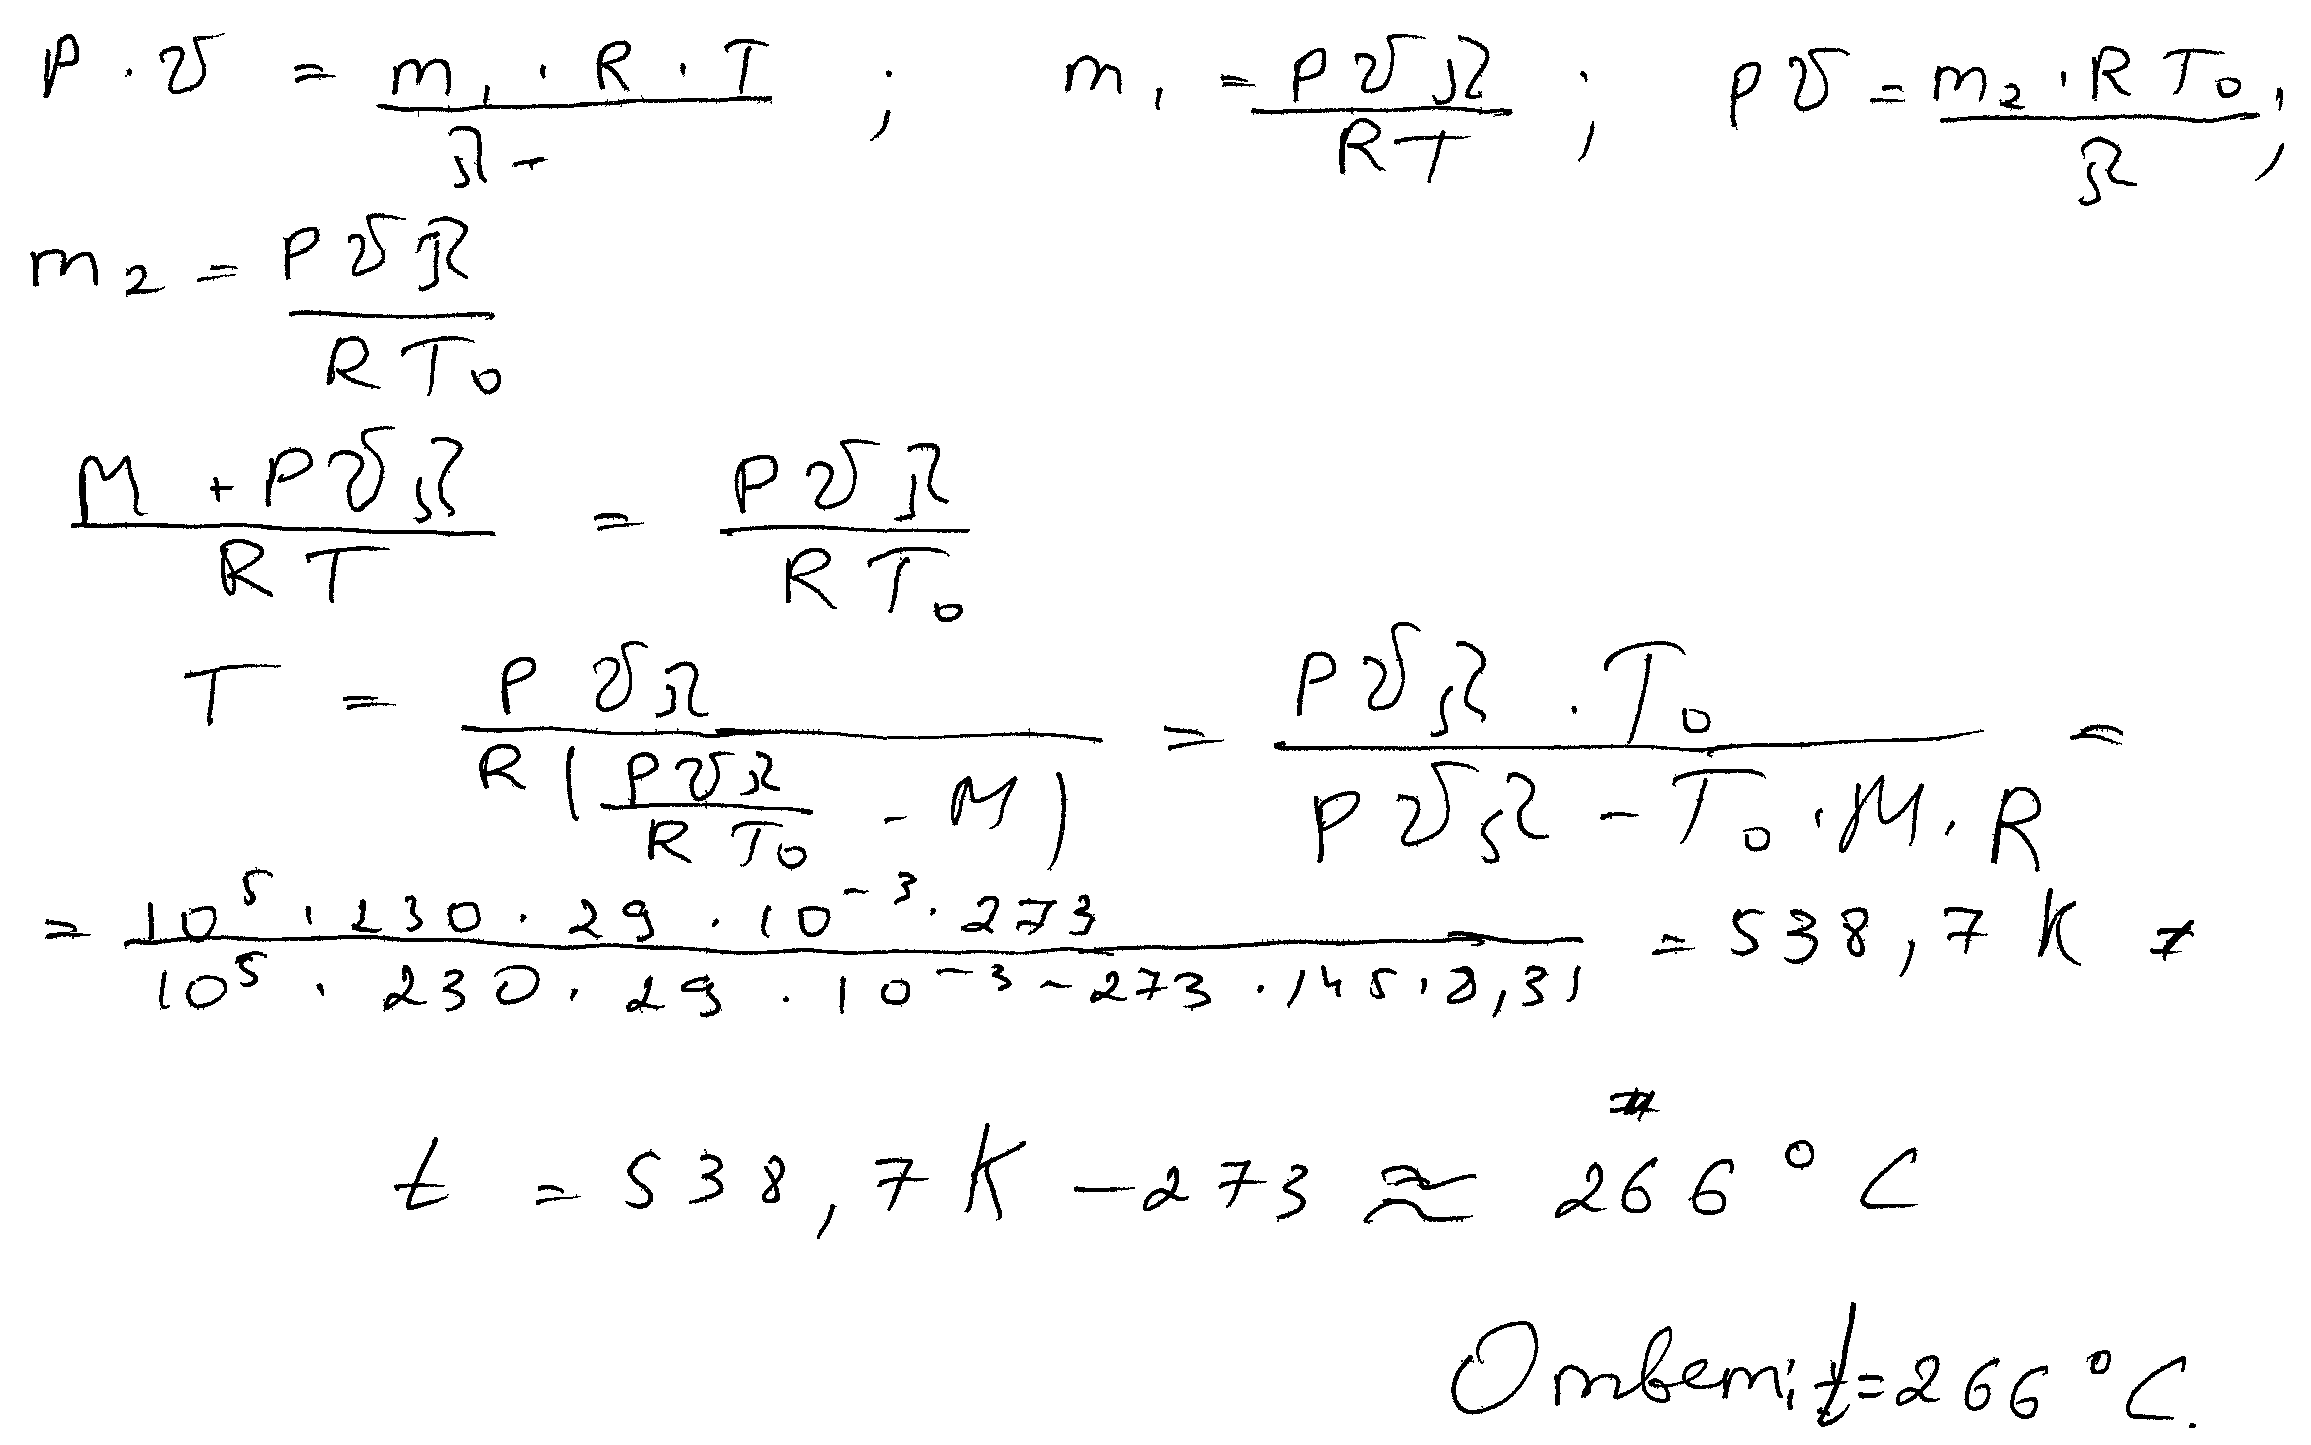 P · V = m₁ · R · T / μ ; m₁ = PVμ / RT ; PV = m₂ · RT₀ / μ ;
m₂ = PVμ / RT₀
M + PVμ / RT = PVμ / RT₀
T = PVμ / R(PVμ / RT₀ - M) = PVμ · T₀ / PVμ - T₀ · M · R =
= 10⁵ · 230 · 29 · 10⁻³ · 273 / 10⁵ · 230 · 29 · 10⁻³ - 273 · 145 · 8,31 = 538,7 K
t = 538,7 K - 273 ≈ 266°C
Ответ: t = 266°C.